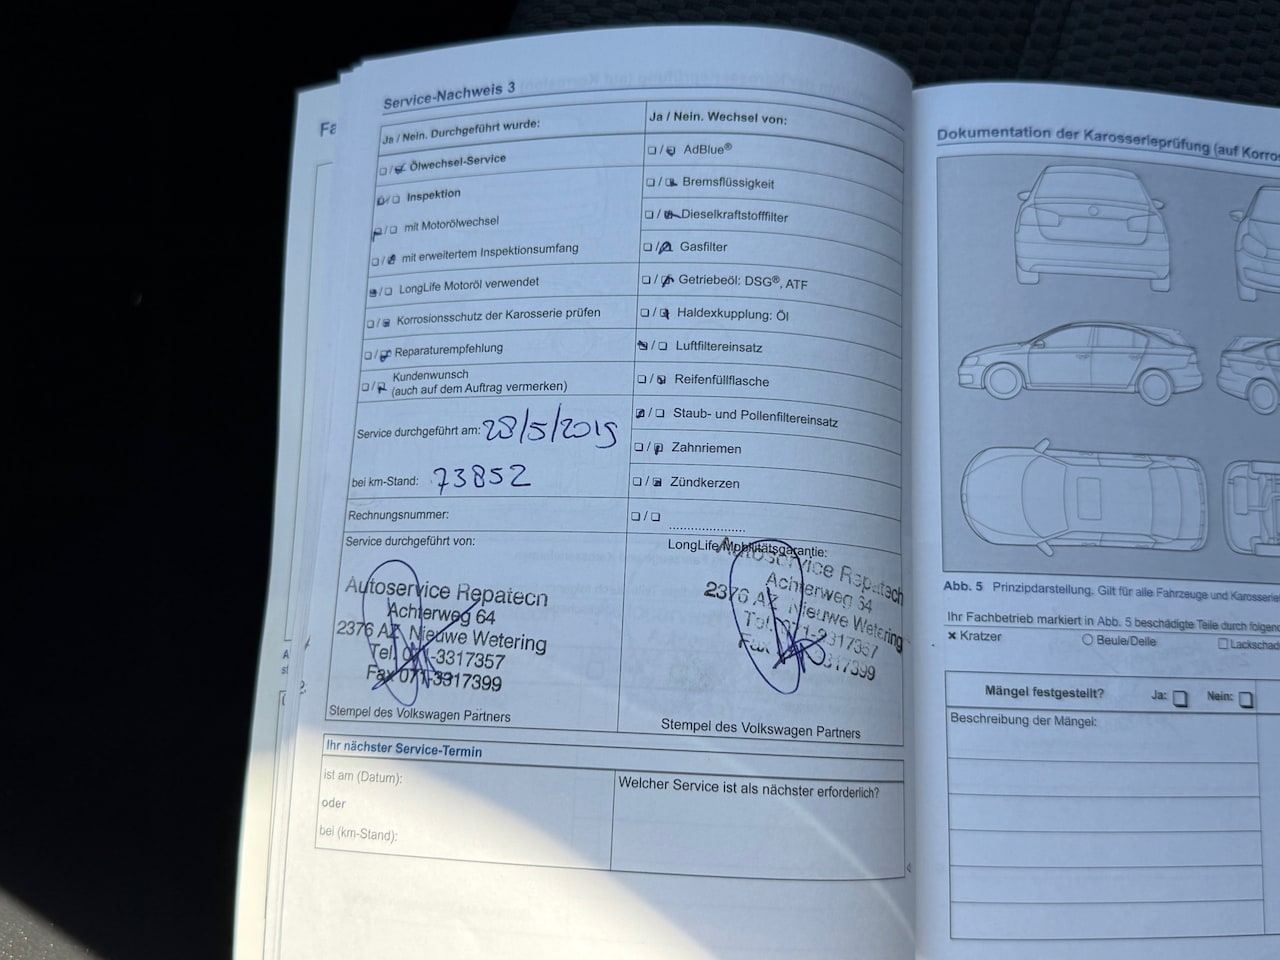 Fa
Service-Nachweis 3
Ja / Nein. Durchgeführt wurde:
Ölwechsel-Service
Inspektion
mit Motorölwechsel
mit erweitertem Inspektionsumfang
LongLife Motoröl verwendet
Korrosionsschutz der Karosserie prüfen
Reparaturempfehlung
Kundenwunsch
(auch auf dem Auftrag vermerken)
Service durchgeführt am: 28/5/2019
bei km-Stand: 73852
Rechnungsnummer:
Service durchgeführt von:
Autoservice Repatech
Achterweg 64
2376 AZ Nieuwe Wetering
Tel. 071-3317357
Fax 071-3317399
Stempel des Volkswagen Partners
Ja / Nein. Wechsel von:
AdBlue®
Bremsflüssigkeit
Dieselkraftstofffilter
Gasfilter
Getriebeöl: DSG®, ATF
Haldexkupplung: Öl
Luftfiltereinsatz
Reifenfüllflasche
Staub- und Pollenfiltereinsatz
Zahnriemen
Zündkerzen
....................
LongLife Mobilitätsgarantie:
Autoservice Repatech
Achterweg 64
2376 AZ Nieuwe Wetering
Tel. 071-3317357
Fax 3317399
Stempel des Volkswagen Partners
Ihr nächster Service-Termin
ist am (Datum):
oder
bei (km-Stand):
Welcher Service ist als nächster erforderlich?
Dokumentation der Karosserieprüfung (auf Korros
Abb. 5 Prinzipdarstellung. Gilt für alle Fahrzeuge und Karosserie
Ihr Fachbetrieb markiert in Abb. 5 beschädigte Teile durch folgen
× Kratzer
Beule/Delle
Lackschad
Mängel festgestellt? Ja: Nein:
Beschreibung der Mängel: